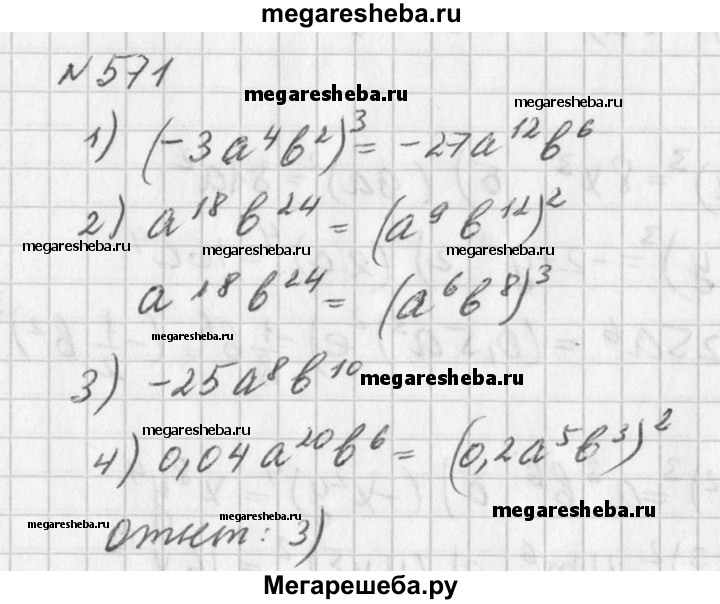 megaresheba.ru
№ 571
megaresheba.ru
megaresheba.ru
1) (-3a⁴b²)³ = -27a¹²b⁶
2) a¹⁸b²⁴ = (a⁹b¹²)²
megaresheba.ru megaresheba.ru megaresheba.ru
a¹⁸b²⁴ = (a⁶b⁸)³
megaresheba.ru
3) -25a⁸b¹⁰ megaresheba.ru
megaresheba.ru
4) 0,04a²⁰b⁶ = (0,2a⁵b³)²
megaresheba.ru megaresheba.ru megaresheba.ru
Ответ: 3)
Мегарешеба.ру